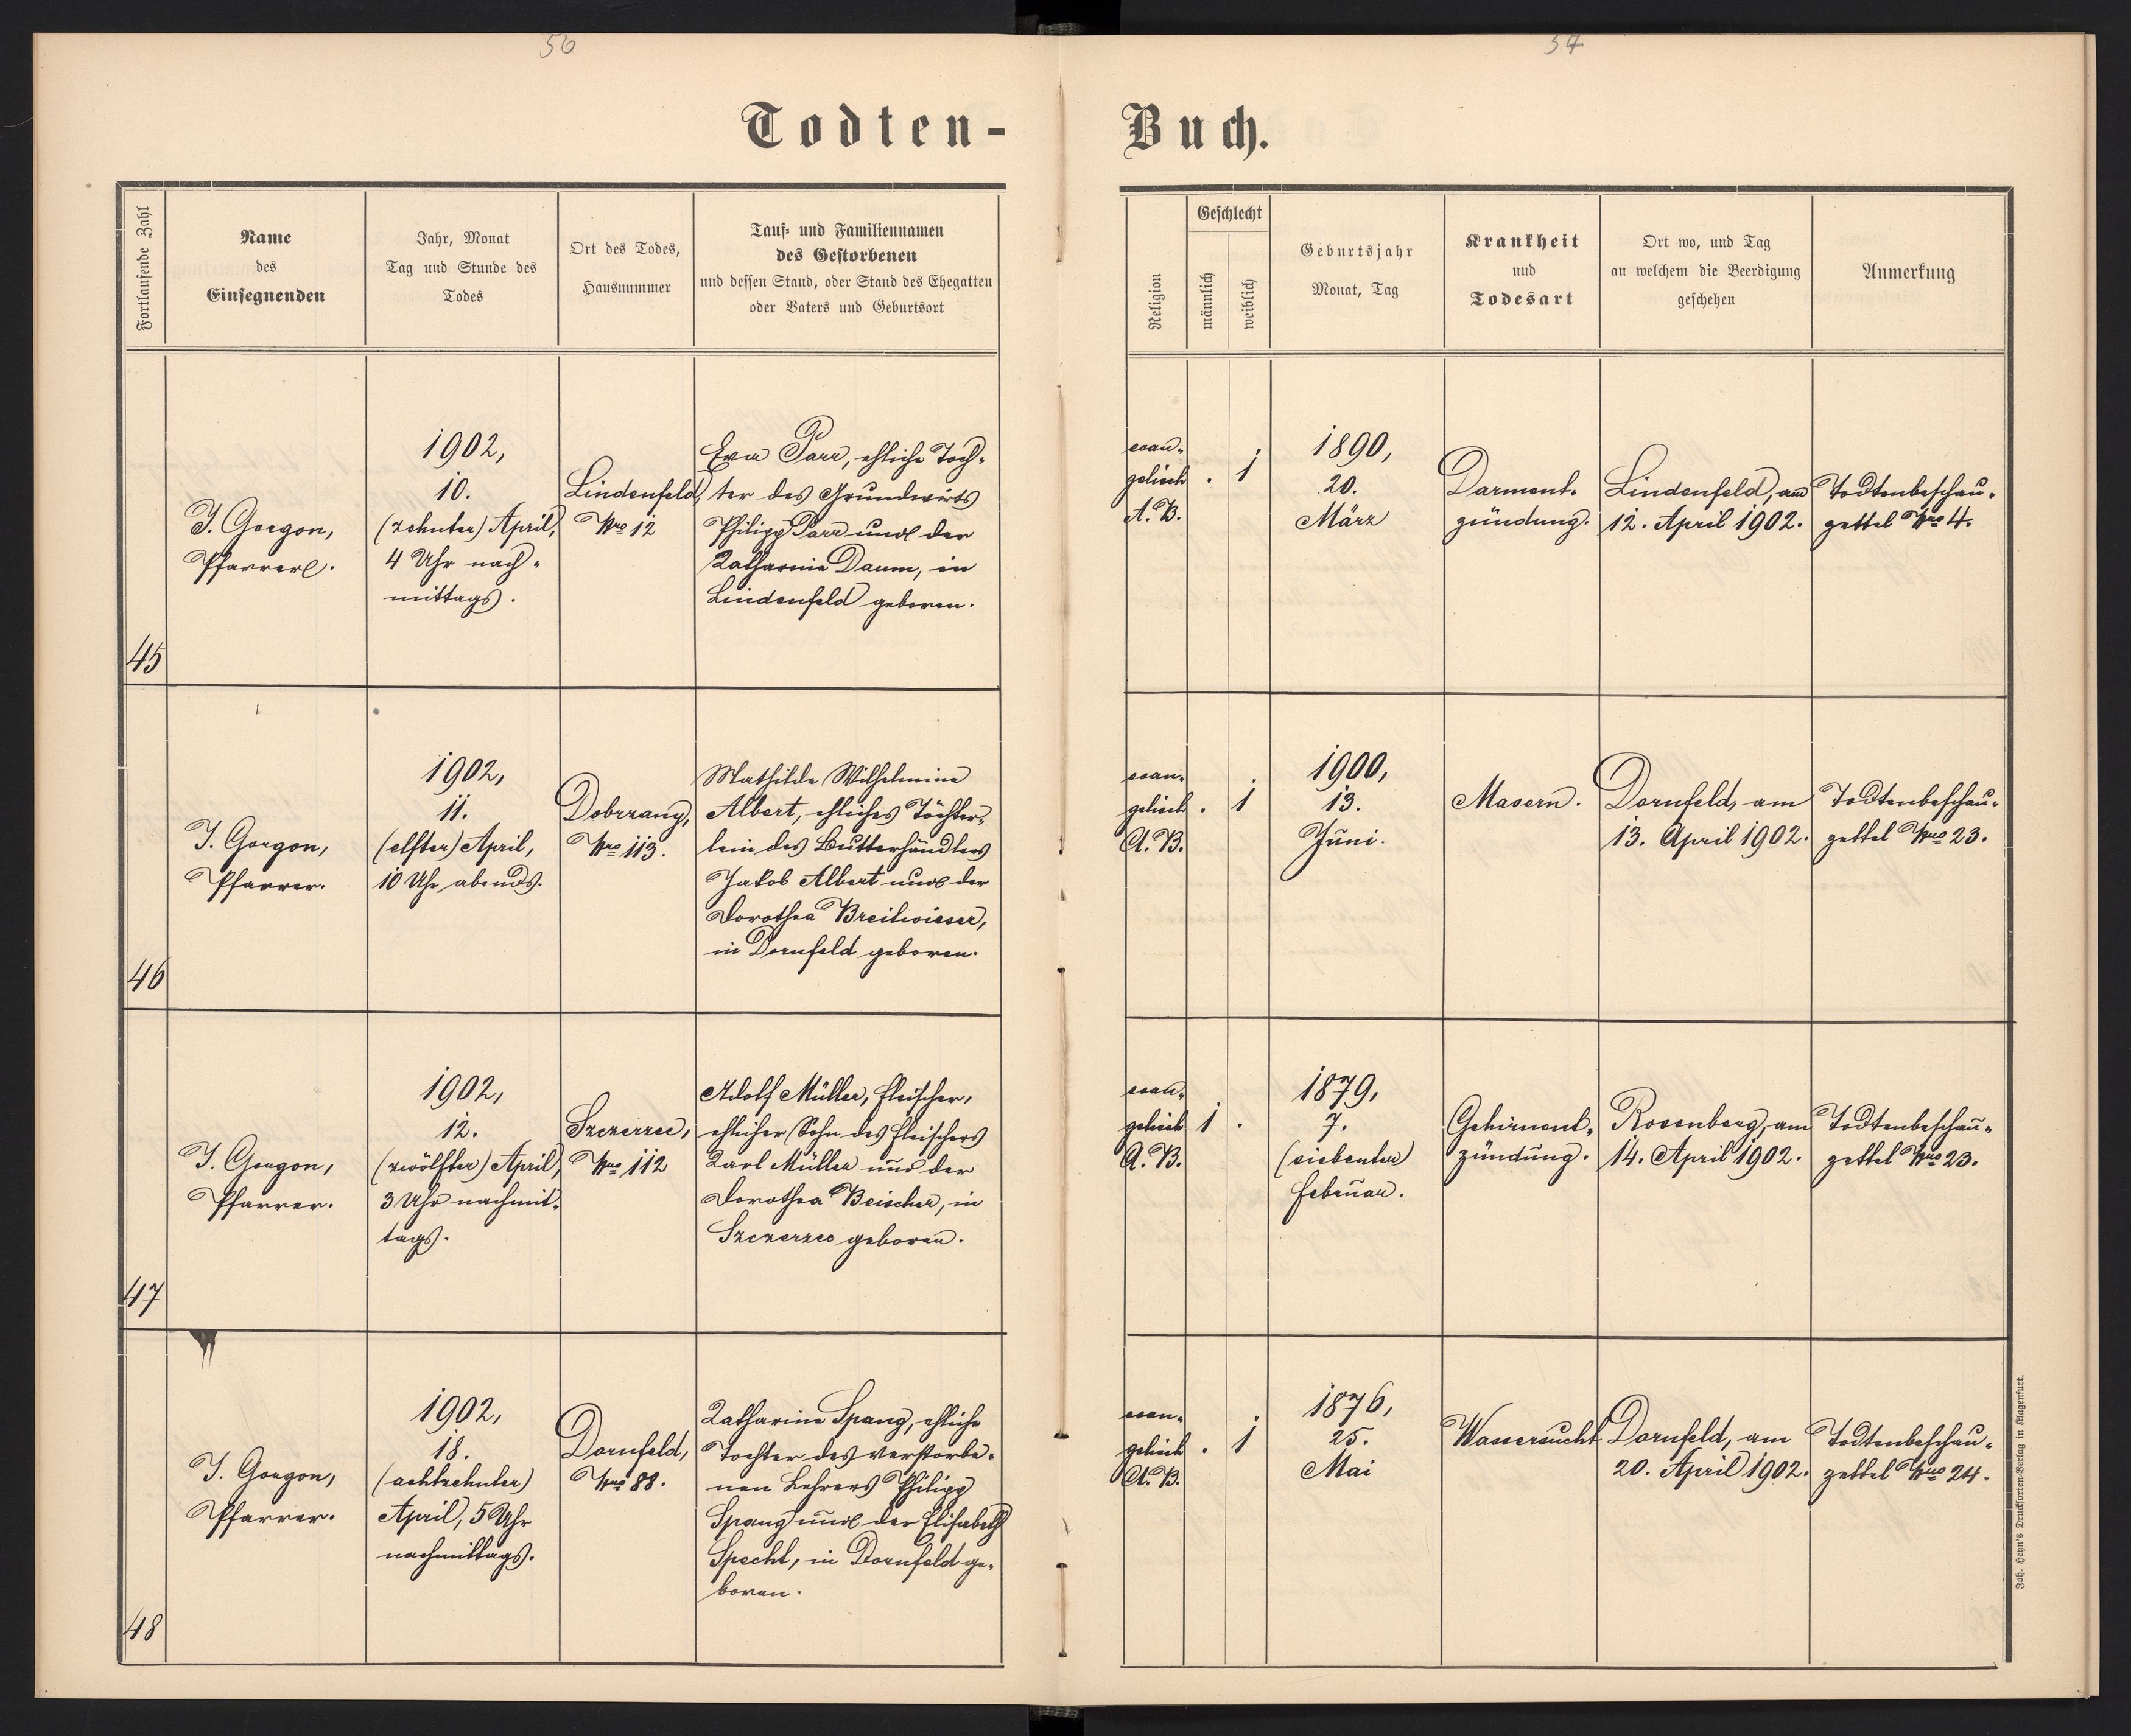 56
57
Todten-
Buch.
Fortlaufende Zahl
Name
des
Einsegnenden
Jahr, Monat
Tag und Stunde des
Todes
Ort des Todes,
Hausnummer
Tauf- und Familiennamen
des Gestorbenen
und dessen Stand, oder Stand des Ehegatten
oder Vaters und Geburtsort
Religion
Geschlecht
männlich
weiblich
Geburtsjahr
Monat, Tag
Krankheit
und
Todesart
Ort wo, und Tag
an welchem die Beerdigung
geschehen
Anmerkung
45
J. Gorgon,
Pfarrer.
1902,
10.
(zehnter) April,
4 Uhr nach-
mittags.
Lindenfeld,
Nro 12
Eva Parr, ehliche Toch-
ter des Grundwirts
Philipp Parr und der
Katharina Daum, in
Lindenfeld geboren.
evan-
gelisch
A. B.
. 1
1890,
20.
März
Darment-
zündung.
Lindenfeld, am
12. April 1902.
Todtenbeschau-
zettel Nro 4.
46
J. Gorgon,
Pfarrer.
1902,
11.
(elfter) April,
10 Uhr abends.
Dobrzany,
Nro 113.
Mathilde Wilhelmine
Albert, ehliches Töchter-
lein des Butterhändlers
Jakob Albert und der
Dorothea Breitwieser,
in Dornfeld geboren.
evan-
gelisch
A. B.
. 1
1900,
13.
Juni.
Masern.
Dornfeld, am
13. April 1902.
Todtenbeschau-
zettel Nro 23.
47
J. Gorgon,
Pfarrer.
1902,
12.
(zwölfter) April,
3 Uhr nachmit-
tags.
Szczerzec,
Nro 112
Adolf Müller, Fleischer,
ehlicher Sohn des Fleischers
Karl Müller und der
Dorothea Beischer, in
Szczerzec geboren.
evan-
gelisch
A. B.
1 .
1879,
7.
(siebenter)
Februar.
Gehirnent-
zündung.
Rosenberg, am
14. April 1902.
Todtenbeschau-
zettel Nro 23.
48
J. Gorgon,
Pfarrer.
1902,
18.
(achtzehnter)
April, 5 Uhr
nachmittags.
Dornfeld,
Nro 88.
Katharina Spang, ehliche
Tochter des verstorbe-
nen Lehrers Philipp
Spang und der Elisabeth
Specht, in Dornfeld ge-
boren.
evan-
gelisch
A. B.
. 1
1876,
25.
Mai
Wassersucht
Dornfeld, am
20. April 1902.
Todtenbeschau-
zettel Nro 24.
Joh. Heyn's Drucksorten-Verlag in Klagenfurt.